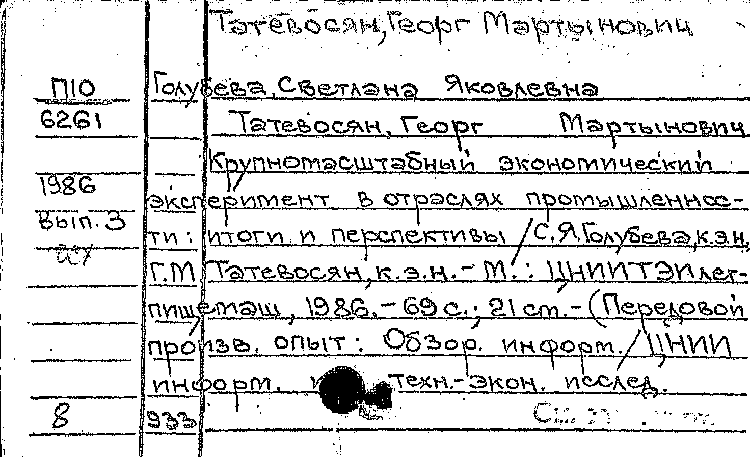 Татевосян, Георг Мартынович
П10 Голубева, Светлана Яковлевна
6261 Татевосян, Георг Мартынович
Крупномасштабный экономический
1986 эксперимент в отраслях промышленнос-
вып. 3 ти: итоги и перспективы / С.Я. Голубева, к.э.н.,
Г.М. Татевосян, к.э.н. - М.: ЦНИИТЭИлег-
пищемаш, 1986. - 69 с.; 21 см. - (Передовой
произв. опыт: Обзор. информ. / ЦНИИ
информ. техн.-экон. исслед.
8 933